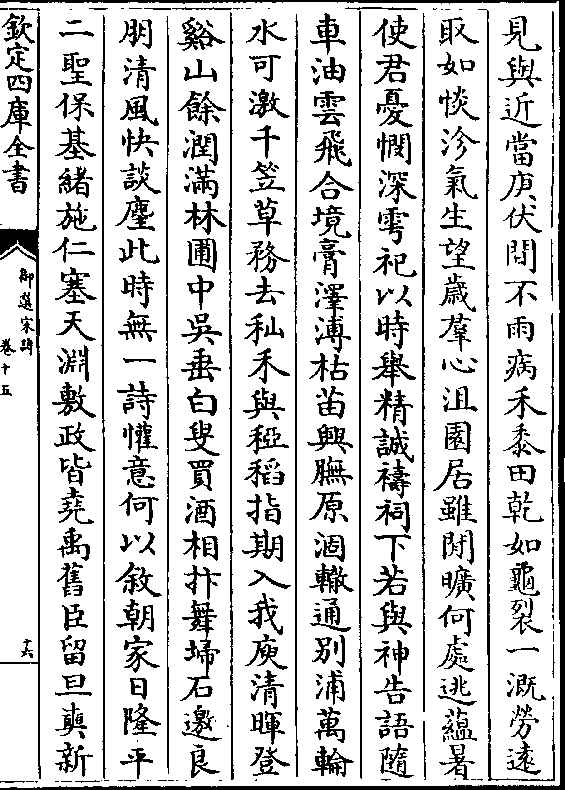 見與近當庚伏間不雨病禾黍田乾如龜裂一溉勞遠
取如惔沴氣生望歲羣心沮園居雖閒曠何處逃蘊暑
使君憂憫深雩祀以時舉精誠禱祠下若與神告語隨
車油雲飛合境膏澤溥枯苗興膴原涸轍通別浦萬輪
水可激千笠草務去秈禾與稏稻指期入我庾清暉登
谿山餘潤滿林圃中吳垂白叟買酒相抃舞埽石邀良
朋清風快談麈此時無一詩懽意何以敘朝家日隆平
二聖保基緒施仁塞天淵敷政皆堯禹舊臣留旦奭新
欽定四庫全書
御選宋詩
卷十五
十六